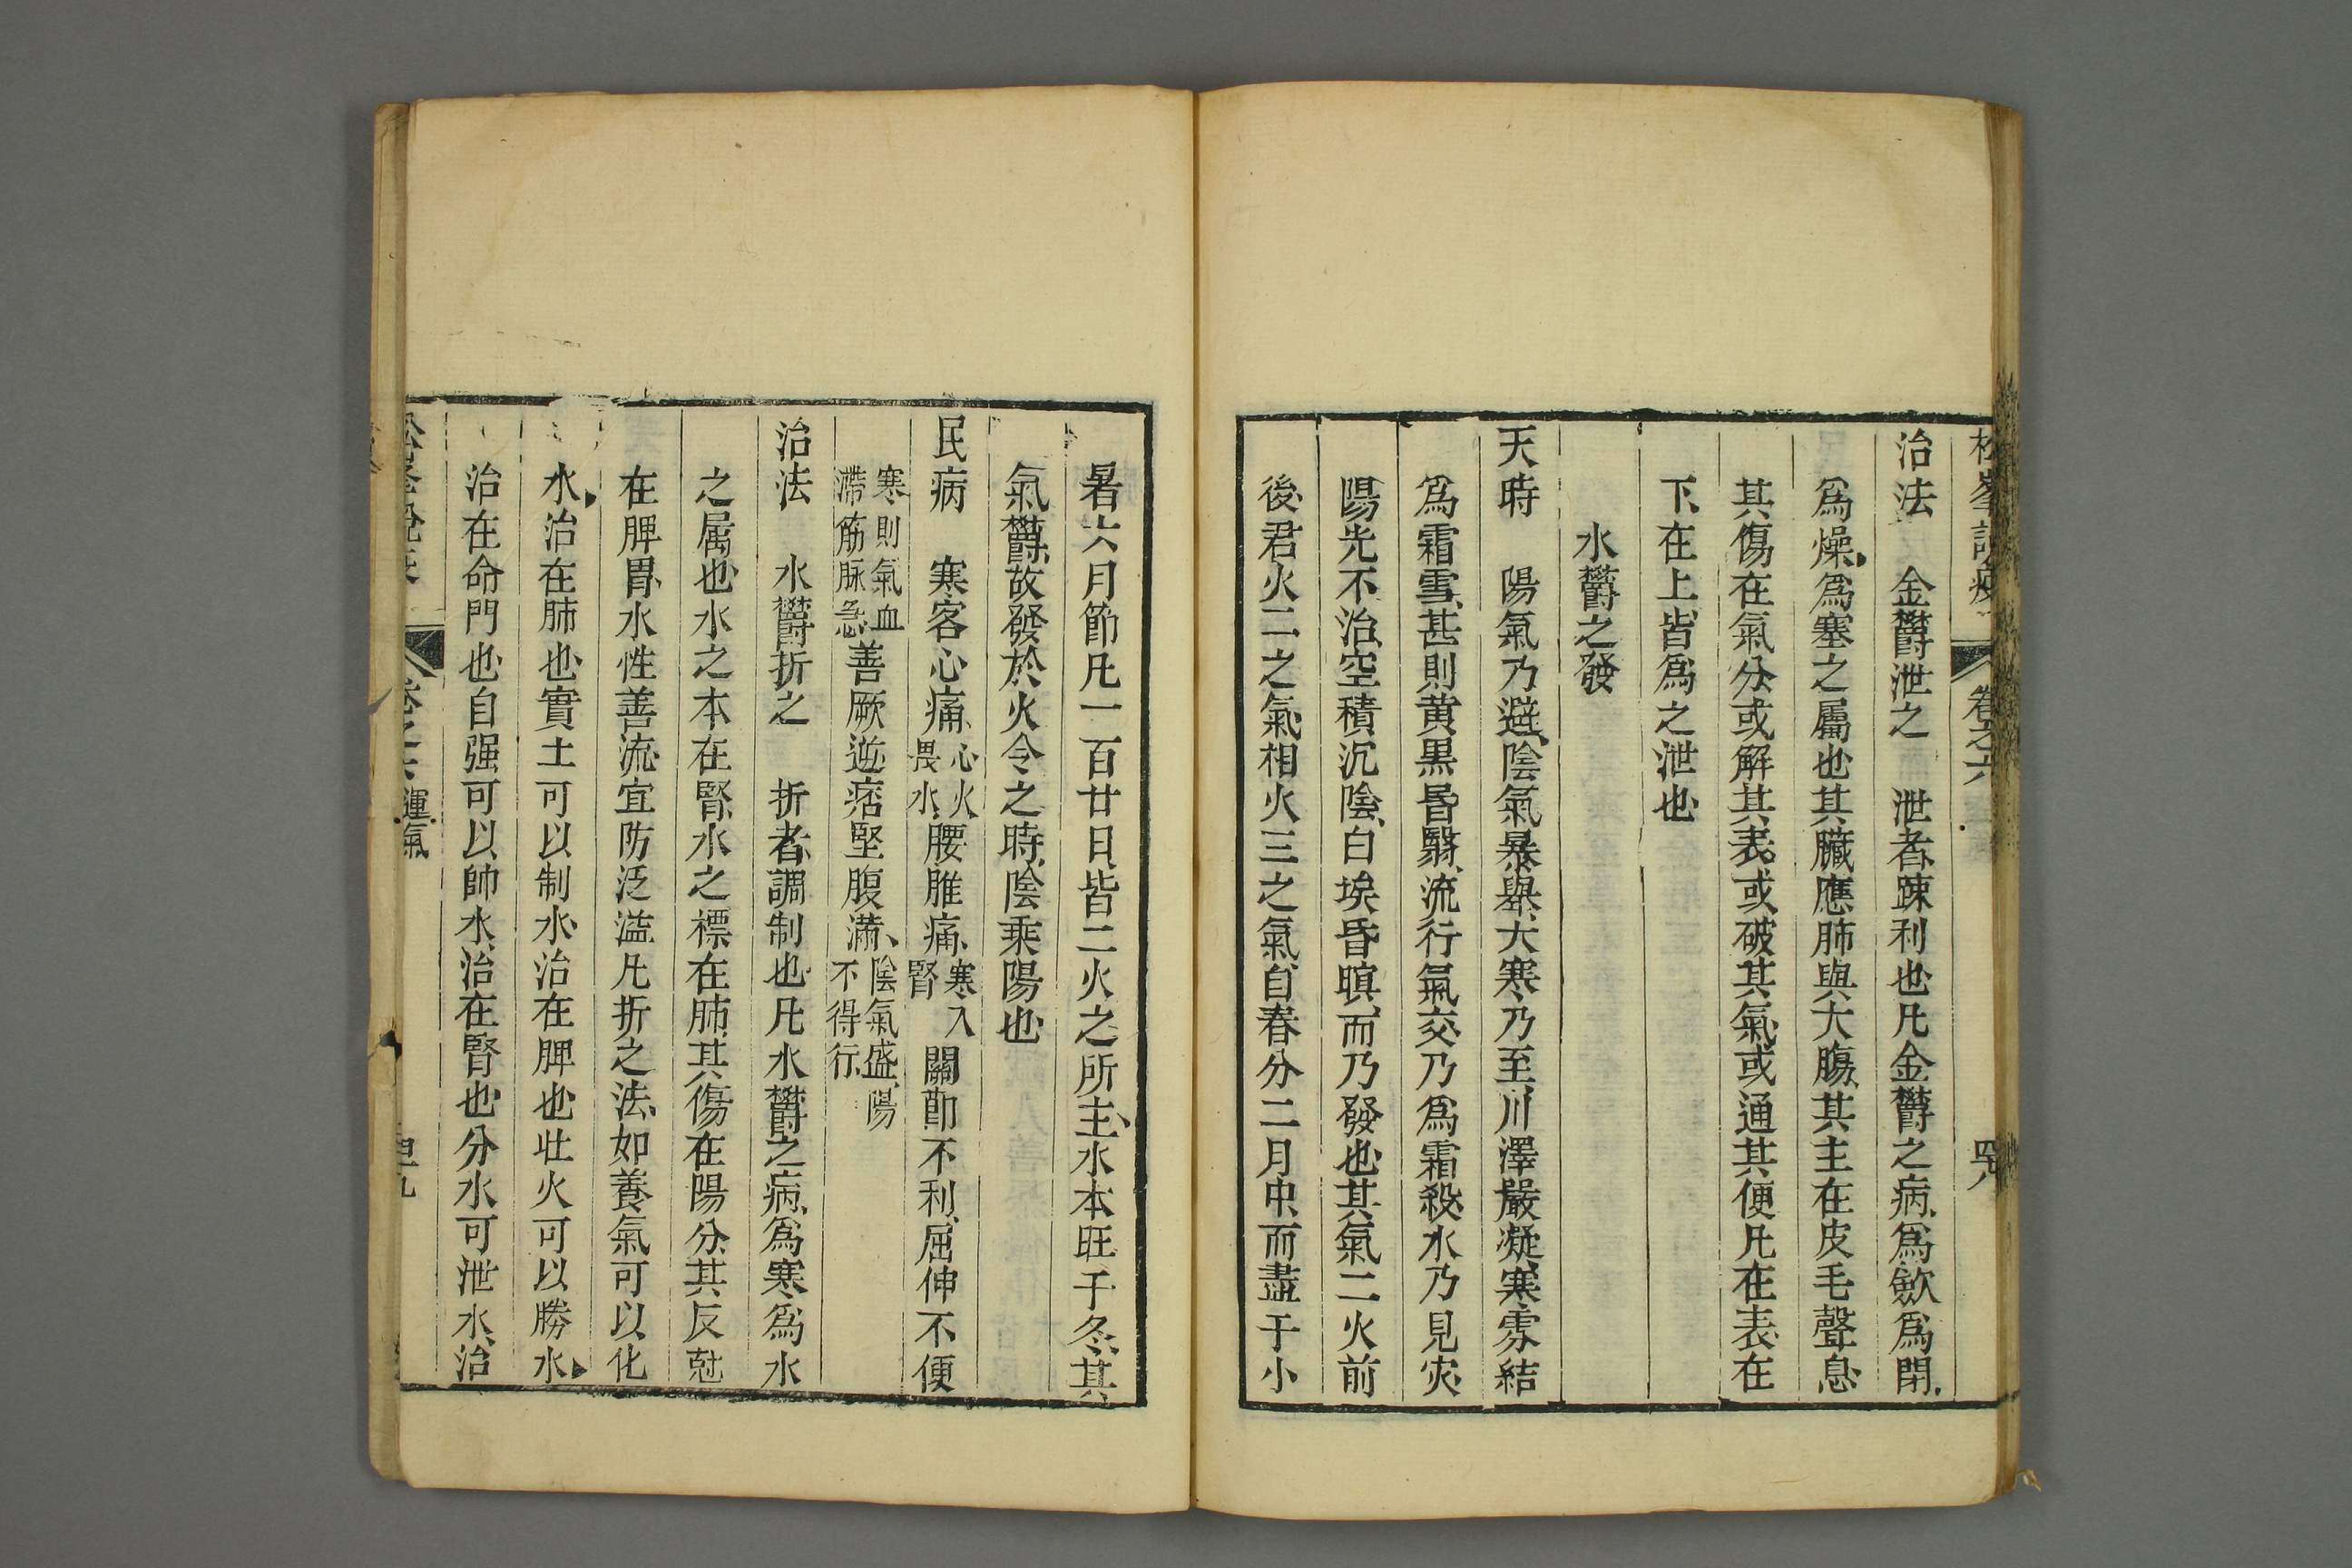 松峯說疫 卷之六 四八
治法 金欝泄之 泄者疎利也凡金欝之病爲歛爲閉
爲燥爲塞之屬也其臟應肺與大腸其主在皮毛聲息
其傷在氣分或解其表或破其氣或通其便凡在表在
下在上皆爲之泄也
水欝之發
天時 陽氣乃避陰氣暴舉大寒乃至川澤嚴凝寒雰結
爲霜雪甚則黄黒昏翳流行氣交乃爲霜殺水乃見灾
陽光不治空積沉陰白埃昏暝而乃發也其氣二火前
後君火二之氣相火三之氣自春分二月中而盡于小
暑六月節凡一百廿日皆二火之所主水本旺于冬其
氣欝故發於火令之時陰乘陽也
民病 寒客心痛心火畏水腰脽痛寒入腎關節不利屈伸不便
寒則氣血滯筋脉急善厥逆痞堅腹滿陰氣盛陽不得行
治法 水欝折之 折者調制也凡水欝之病爲寒爲水
之属也水之本在腎水之標在肺其傷在陽分其反尅
在脾胃水性善流宜防泛溢凡折之法如養氣可以化
水治在肺也實土可以制水治在脾也壯火可以勝水
治在命門也自强可以帥水治在腎也分水可泄水治
卷之六 運氣 四九